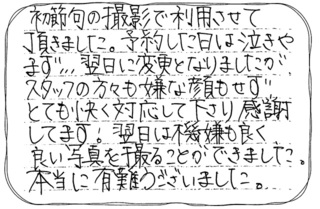 初節句の撮影で利用させて
頂きました。予約した日は泣きや
まず… 翌日に変更となりましたが
スタッフの方々も嫌な顔もせず
とても快く対応して下さり感謝
してます! 翌日は機嫌も良く
良い写真を撮ることができました。
本当に有難うございました。